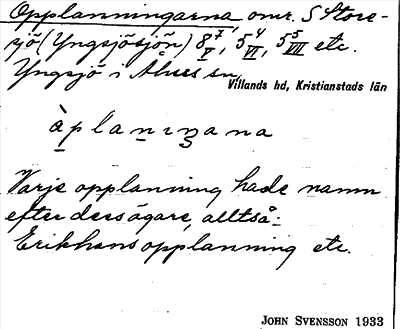 Opplanningarna, omr. S Store-
sjö (Yngsjösjön) 8 7/V, 5 4/VI, 5 5/VIII etc.
Yngsjö i Åhus sn,
Villands hd, Kristianstads län
àplanıŋana
Varje opplanning hade namn
efter dess ägare, alltså:
Erikhans opplanning etc.
JOHN SVENSSON 1933